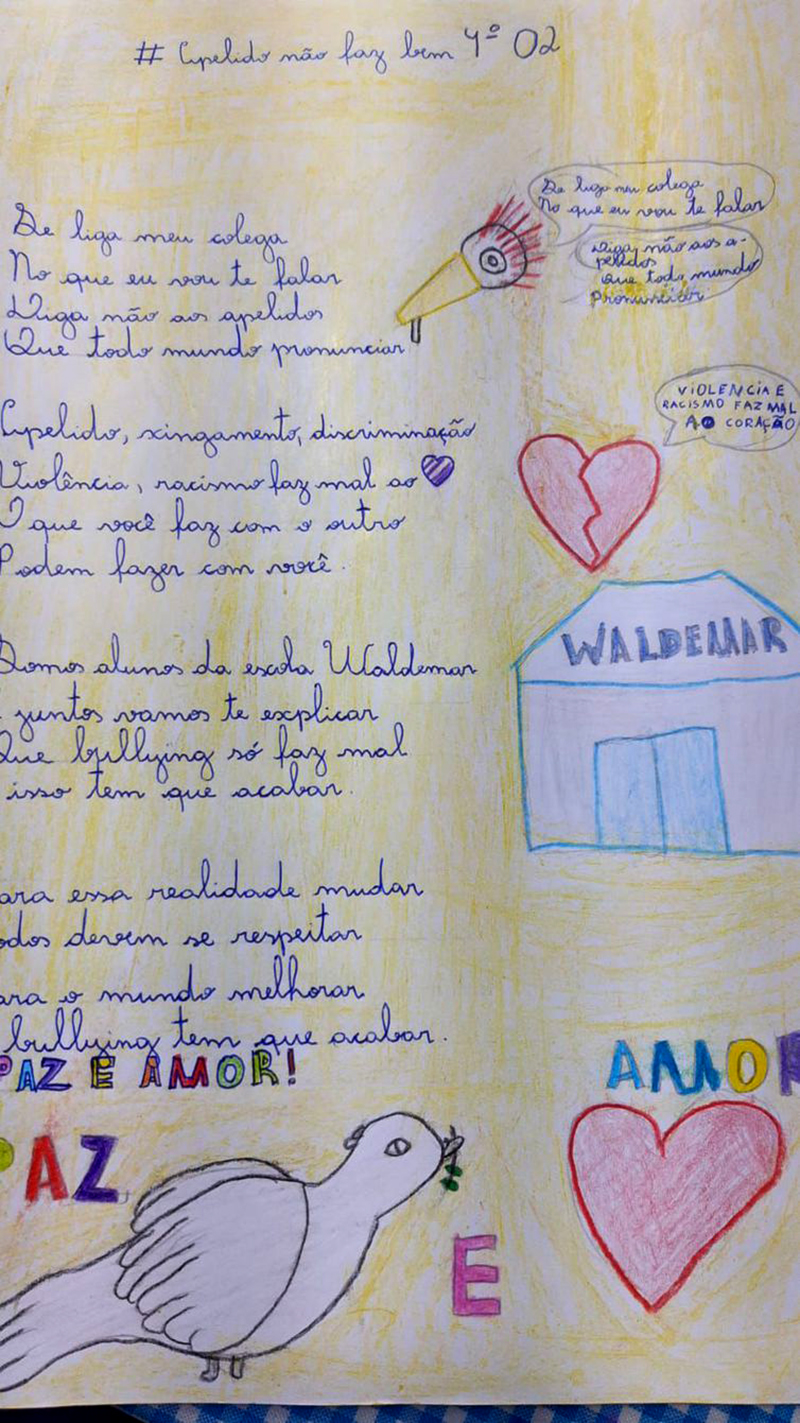 # Apelido não faz bem 4º 02
Se liga meu colega
No que eu vou te falar
Diga não aos apelidos
Que todo mundo pronunciar
Se liga meu colega
No que eu vou te falar
Diga não aos a-
pelidos
Que todo mundo
Pronunciar
Apelido, xingamento, discriminação
Violência, racismo faz mal ao
O que você faz com o outro
Podem fazer com você.
VIOLENCIA E
RACISMO FAZ MAL
AO CORAÇÃO
Somos alunos da escola Waldemar
juntos vamos te explicar
Que bullying só faz mal
isso tem que acabar.
WALDEMAR
ara essa realidade mudar
odos devem se respeitar
ara o mundo melhorar
bullying tem que acabar.
PAZ E AMOR!
AMOR
PAZ
E